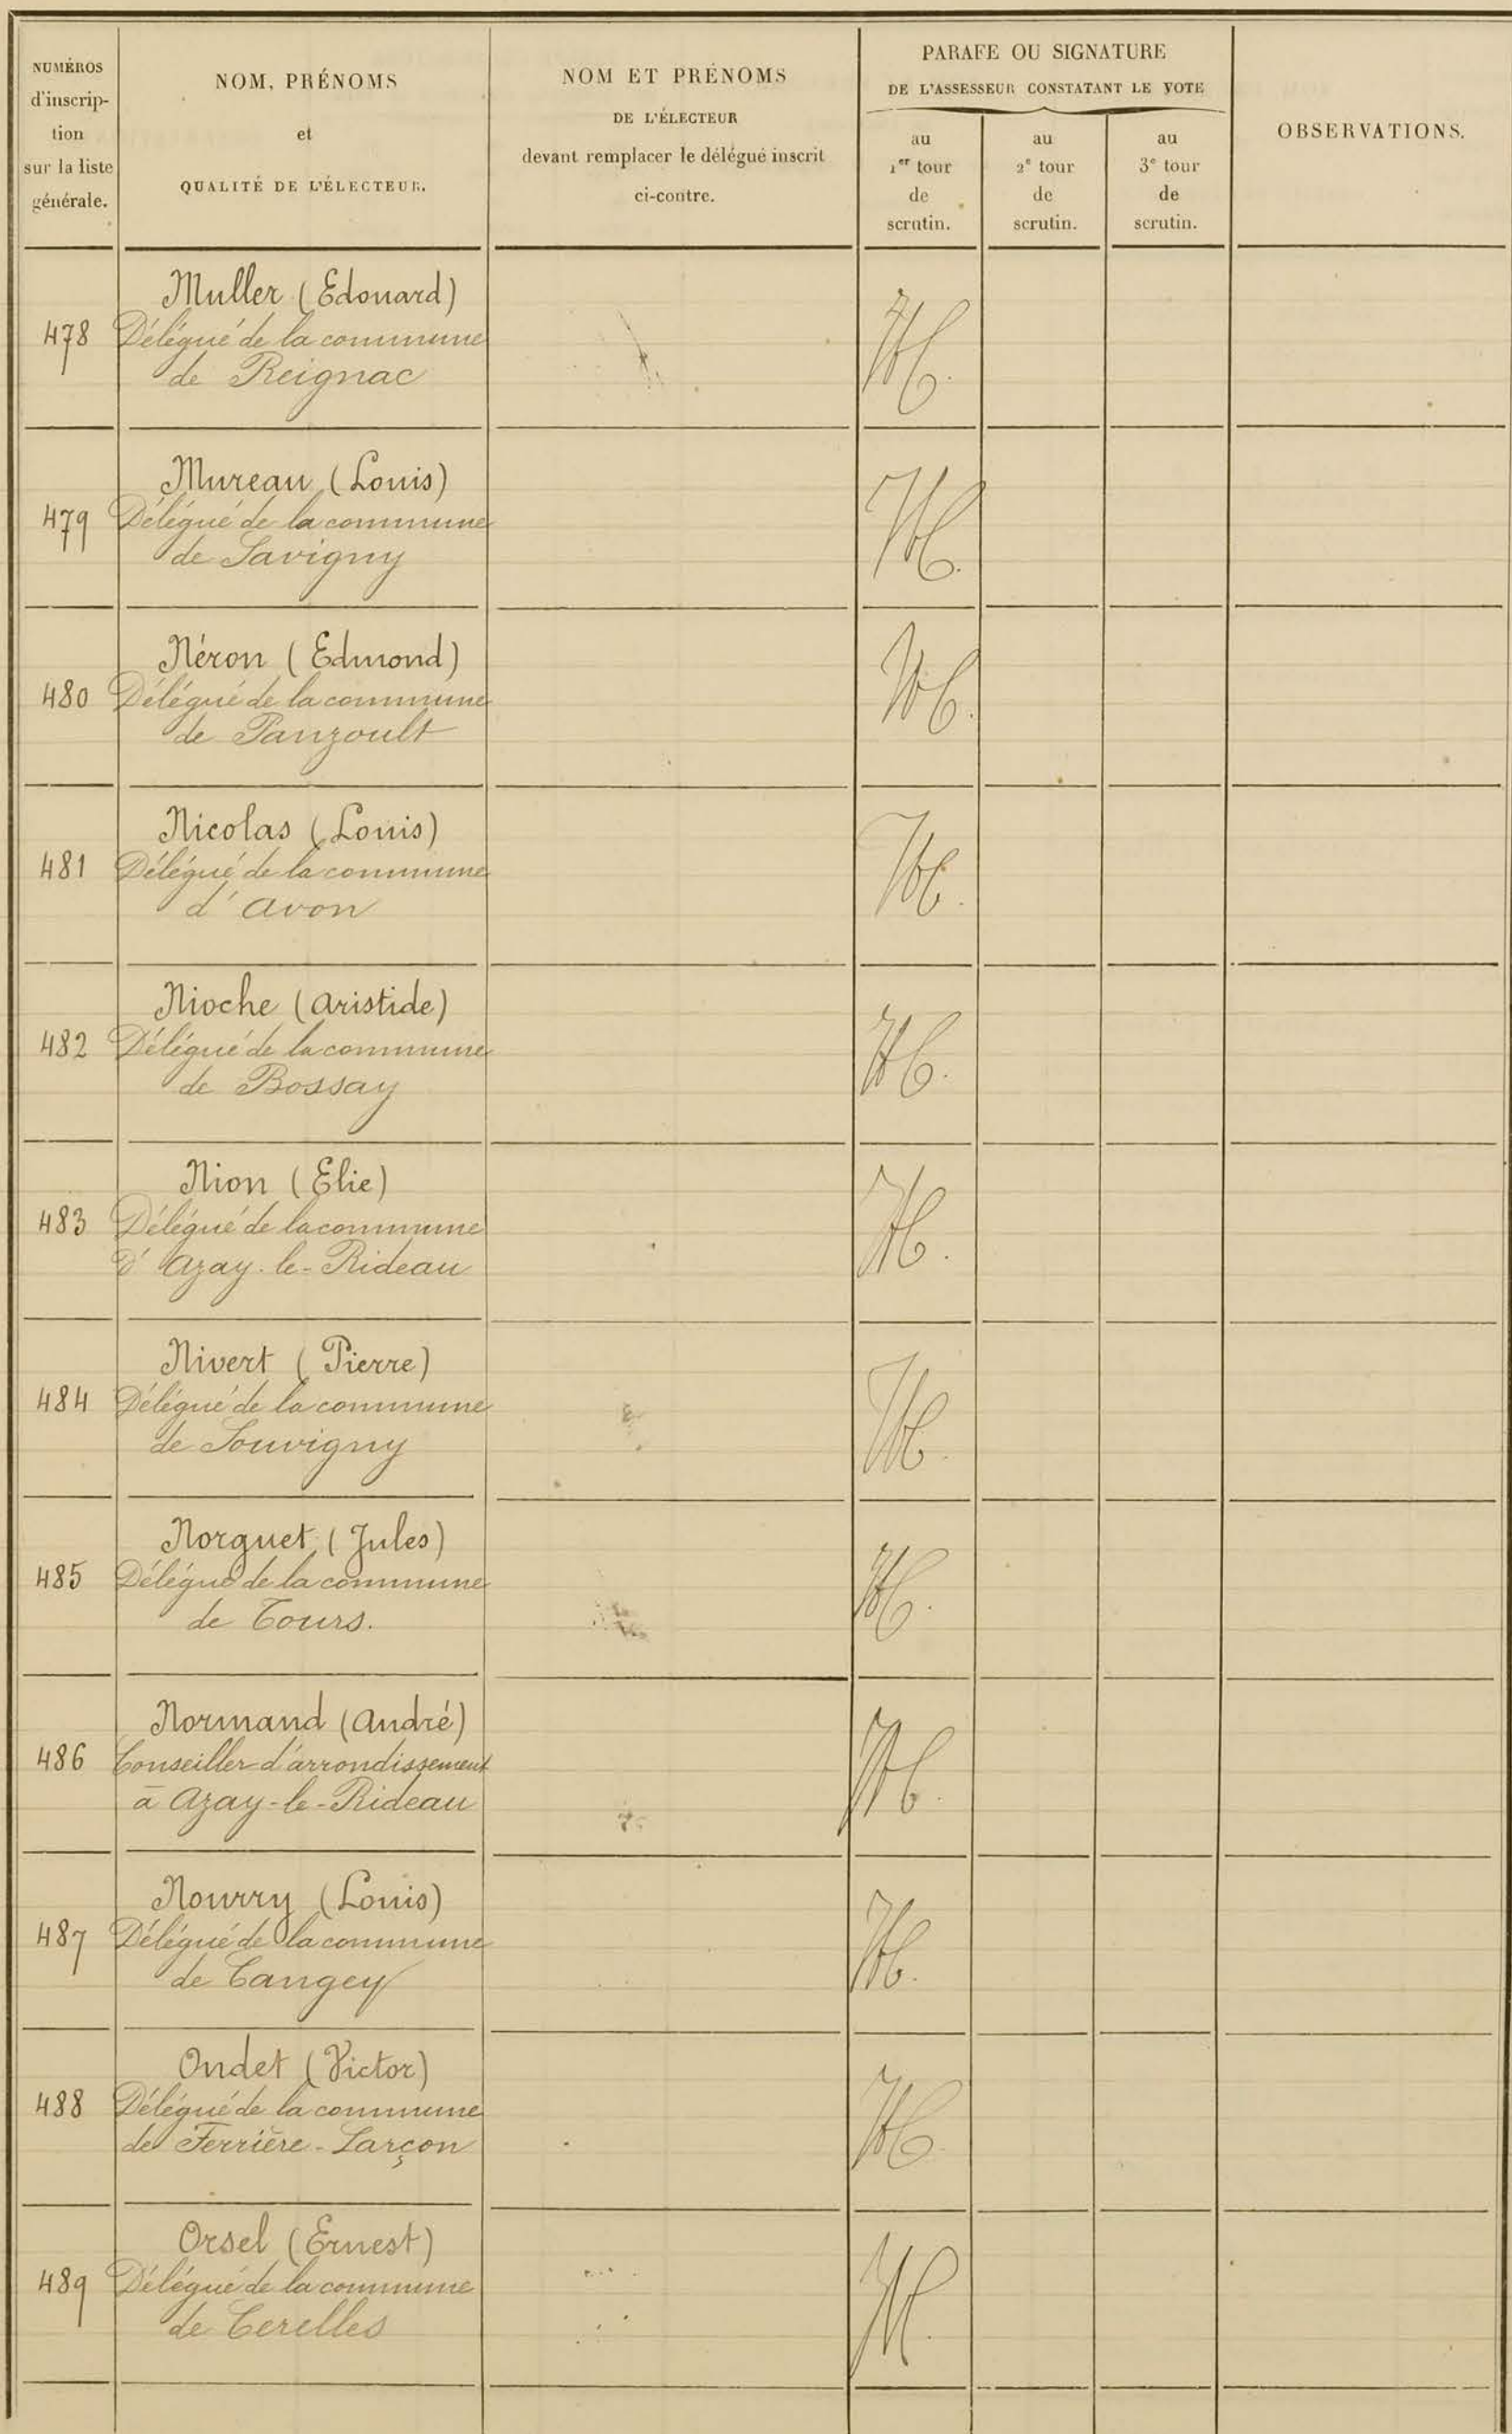 NUMÉROS
d'inscrip-
tion
sur la liste
générale.
NOM, PRÉNOMS
et
QUALITÉ DE L'ÉLECTEUR.
NOM ET PRÉNOMS
DE L'ÉLECTEUR
devant remplacer le délégué inscrit
ci-contre.
PARAFE OU SIGNATURE
DE L'ASSESSEUR CONSTATANT LE VOTE
au
1er tour
de
scrutin.
au
2e tour
de
scrutin.
au
3e tour
de
scrutin.
OBSERVATIONS.
Muller (Edouard)
478 Délégué de la commune
de Reignac
Mureau (Louis)
479 Délégué de la commune
de Savigny
Néron (Edmond)
480 Délégué de la commune
de Panzoult
Nicolas (Louis)
481 Délégué de la commune
d'Avon
Nioche (Aristide)
482 Délégué de la commune
de Bossay
Nion (Elie)
483 Délégué de la commune
d'Azay-le-Rideau
Nivert (Pierre)
484 Délégué de la commune
de Souvigny
Norguet (Jules)
485 Délégué de la commune
de Tours.
Normand (André)
486 Conseiller d'arrondissement
à Azay-le-Rideau
Nourry (Louis)
487 Délégué de la commune
de Cangey
Ondet (Victor)
488 Délégué de la commune
de Ferrière-Larçon
Orsel (Ernest)
489 Délégué de la commune
de Cerelles